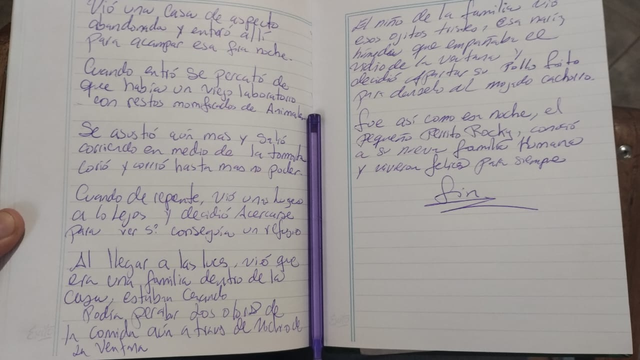 Vió una casa de aspecto
abandonada y entró allí
para acampar esa fría noche.
Cuando entró se percató de
que había un viejo laboratorio
con restos momificados de Animales
Se asustó aún mas y salió
corriendo en medio de la tormenta
corió y corrió hasta mas no poder.
Cuando de repente, vió una luz
a lo lejos y decidió Acercarse
para ver si conseguía un refugio
Al llegar a las luces, vió que
era una familia dentro de la
Casa, estaban Cenando
Podía percibir los olores de
la comida aún a traves de Vidrio de
la Ventana
El niño de la familia vió
esos ojitos tristes, esa nariz
húmeda que empañaba el
vidrio de la ventana y
decidió apartar su Pollo frito
para dárselo al mojado cachorro.
Fue así como en noche, el
pequeño perrito Rocky, conoció
a su nueva familia Humana
y vivieron felices para siempre
Fin